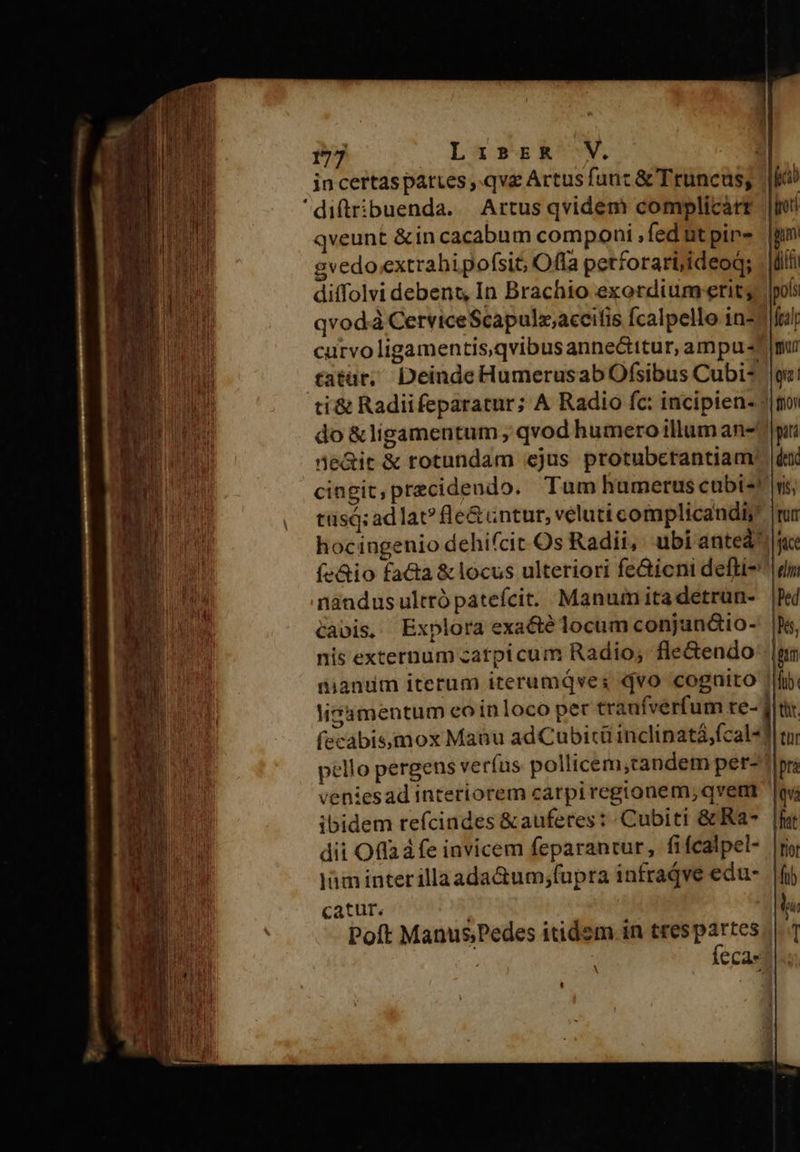 177 LIBER V.
in certas partes, qvæ Artus sunt & Truncus,
distribuenda. Artus qvidem complicarr
qveunt & in cacabum componi, sed ut pin-
gvedo extrahi possit, Ossa perforari, ideoq;
dissolvi debent, In Brachio exordium erit,
qvod à Cervice Scapulæ, accisis scalpello in-
curvo ligamentis, qvibus annectitur, ampu-
tatur. Deinde Humerus ab Ofsibus Cubi-
ti & Radii separatur; A Radio sc: incipien-
do & ligamentum, qvod humero illum an-
nectit & rotundam ejus protuberantiam
cingit, præcidendo. Tum humerus cubi-
tusq; ad lat⁹ flectuntur, veluti complicandi,
hoc ingenio dehiscit Os Radii, ubi anteà
sectio facta & locus ulteriori sectioni desti-
nandus ultrò patescit. Manum ita detrun-
cabis. Explora exactè locum conjunctio-
nis externum carpi cum Radio, flectendo
manum iterum iterumqve; qvo cognito
ligamentum eo in loco per transversum re-
secabis, mox Manu ad Cubitū inclinatâ, scal-
pello pergens versus pollicem, tandem per-
venies ad interiorem carpi regionem, qvem
ibidem rescindes & auferes: Cubiti & Ra-
dii Ossa à se invicem separantur, si scalpel-
lum inter illa adactum, supra infraqve edu-
catur.
Post Manus, Pedes itidem in tres partes
seca-